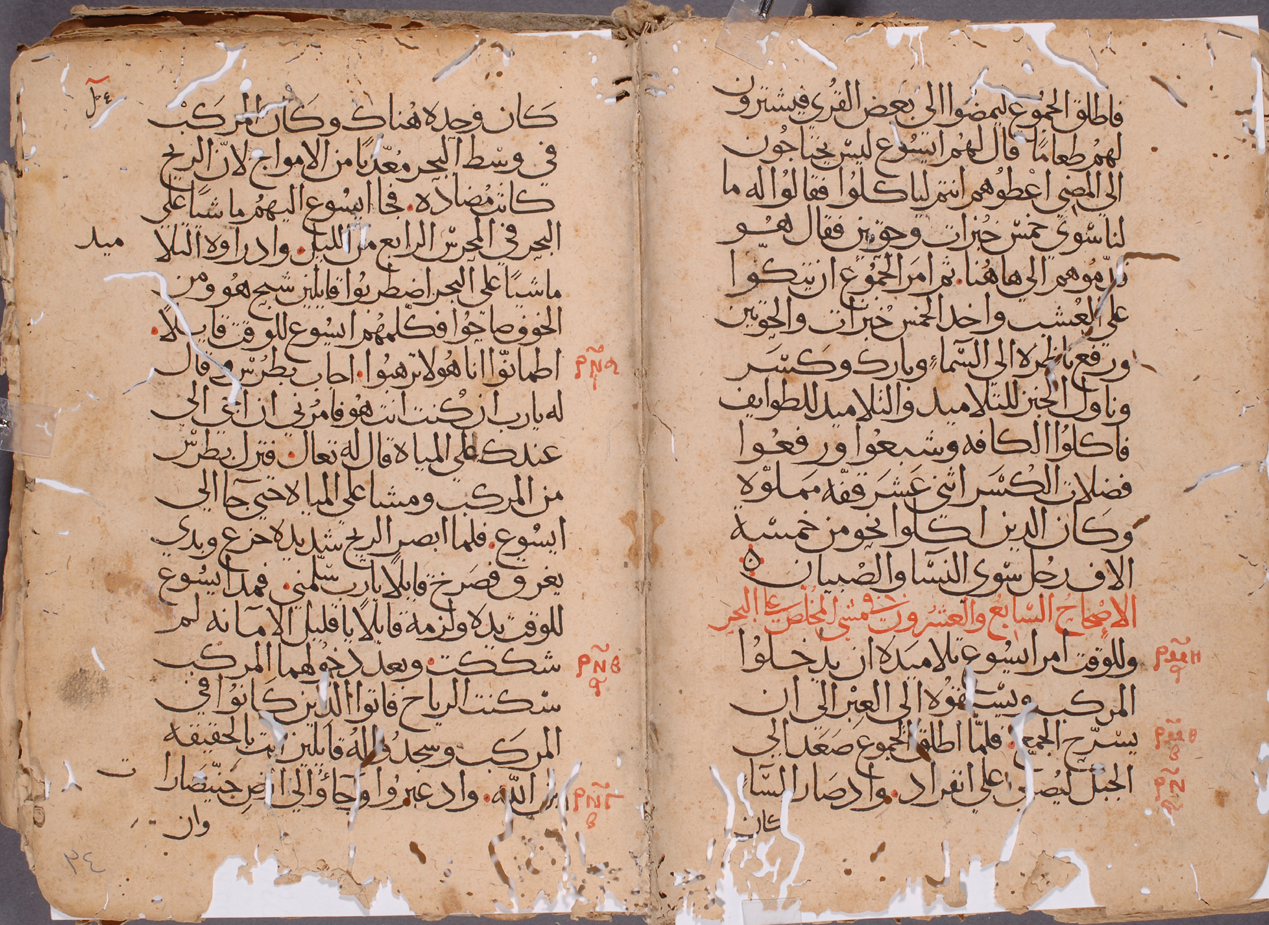 فاطلق الجموع ليمضوا الى بعض القرى فيشترون
لهم طعاما قال لهم ايسوع ليس يحتاجون
الى المضي اعطوهم انتم لياكلوا فقالوا له ما
لنا سوى خمس خبزات وحوتين فقال هو
قدموهم الى هاهنا. ثم امر الجموع ان يتكوا
على العشب واخذ الخمس خبزات والحوتين
ورفع ناظره الى السماء وبارك وكسر
وناول الخبز للتلاميد والتلاميد للطوايف
فاكلوا الكافه وشبعوا ورفعوا
فضلات الكسر اثنى عشر قفه مملوّه
وكان الدين اكلوا نحو من خمسة
الاف رجل سوى النسا والصبيان
الاصحاح السابع والعشرون في مشي المخلص على البحر
وللوقت امر ايسوع تلاميده ان يدخلوا
المركب ويسبقوه الى العبر الى ان
يسرّح الجمع. فلما اطلق الجموع صعد الى
الجبل ليصلى على انفراد. واد صار المسا
كان
كان وحده هناك وكان المركب
في وسط البحر معدبا من الامواج لان الريح
كانت مضاده. فجا ايسوع اليهم ماشيا على
البحر في المحرس الرابع من الليل. واد راوه التلا
ميد
ماشيا على البحر اضطربوا قايلين شبح هو ومن
الخوف صاحوا فكلمهم ايسوع للوقت قايلا.
اطمانوا انا هو لا ترهبوا. اجاب بطرس وقال
له يارب ان كنت انت هو فامرني ان اتى الى
عندك على المياه قال له تعال. فنزل بطرس
من المركب ومشا على المياه حتى جا الى
ايسوع. فلما ابصر الريح شديده جزع وبدي
يغرق فصرخ قايلا يارب سلمني. فمد ايسوع
للوقت يده ولزمه قايلا يا قليل الامانه لم
شككت. وبعد دخولهما المركب
سكنت الرياح فاتوا الدين كانوا في
المركب وسجدوا له قايلين انت بالحقيقه
ابن الله. واد عبروا وجاؤ الى ارض جنيصارا
ت
وان
٣٤